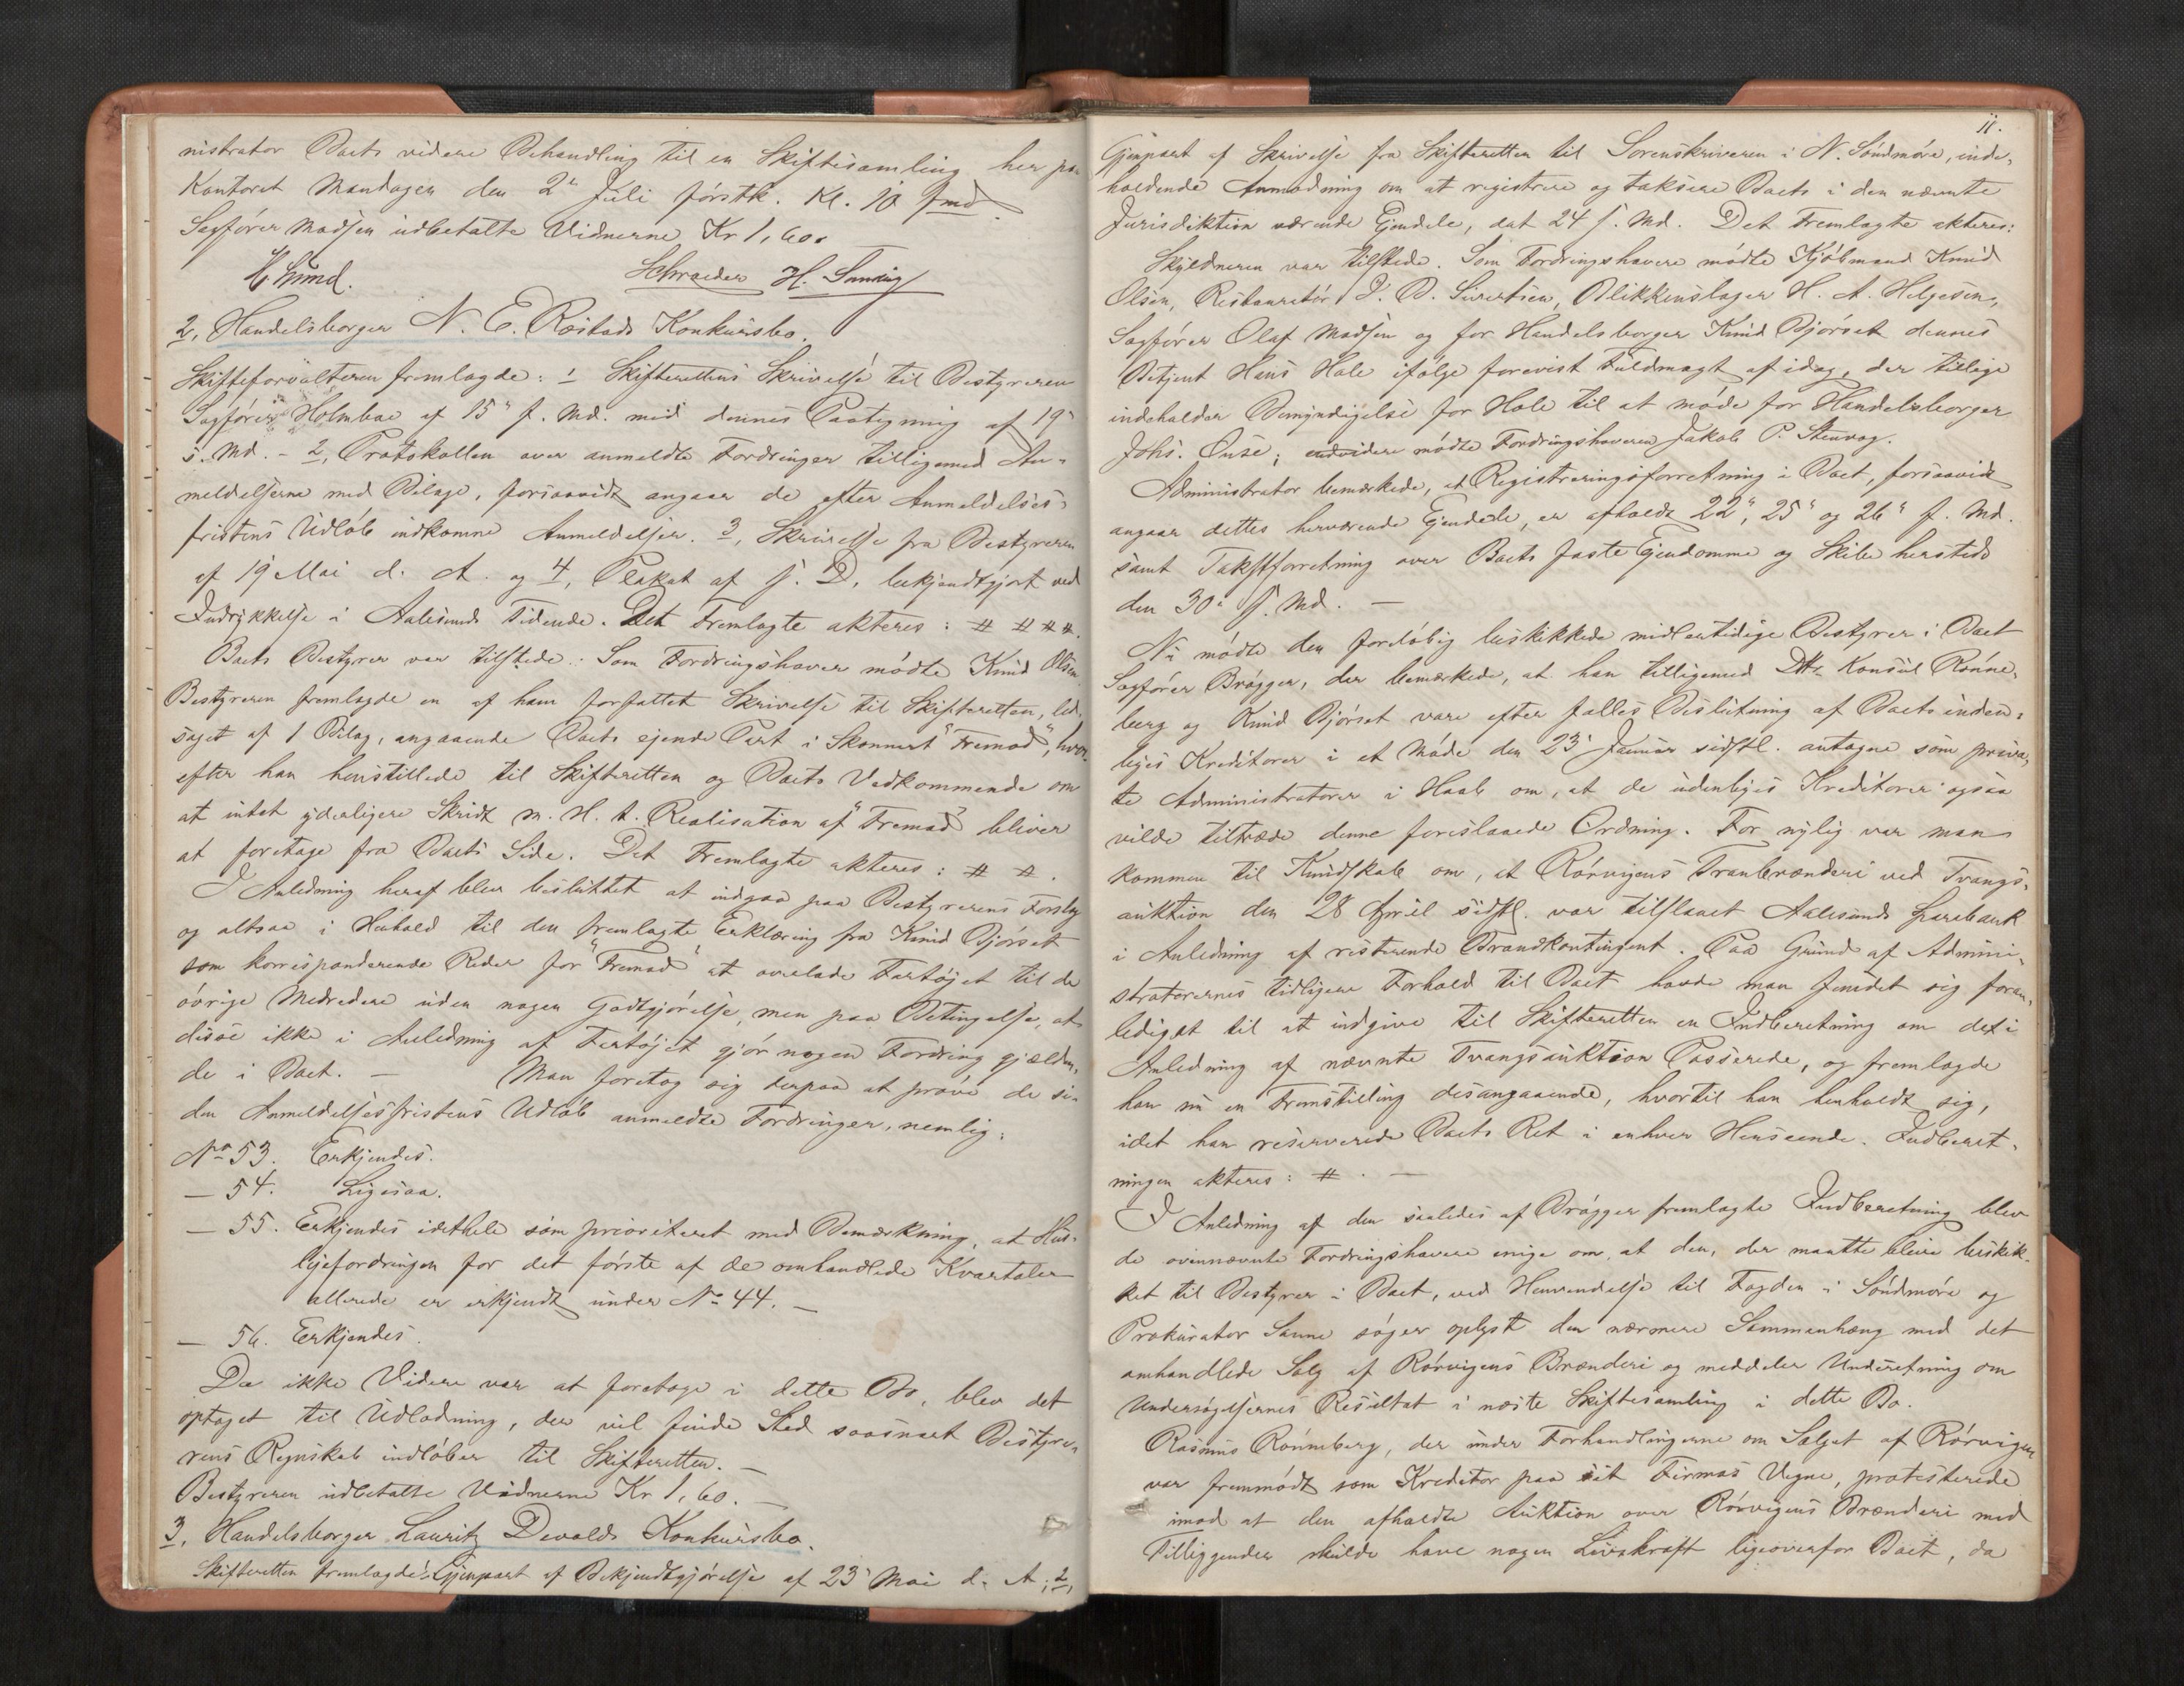 nistrator Boets videre Behandling til en Skiftesamling her paa
Kontoret Mandagen den 2den Juli førstk. Kl. 10 Fmd.
Sagfører Madsen udbetalte Vidnerne Kr 1,60.
Schrøder H. Landing
2, Handelsborger N. E. Røstads Konkursbo.
Skifteforvalteren fremlagde: 1 Skifterettens Skrivelse til Bestyreren
Sagfører Holmboe af 15" f. Md. med dennes Paategning af 19"
s. Md. - 2, Protokollen over anmeldte Fordringer tilligemed An-
meldelserne med Bilage, forsaavidt angaar de efter Anmeldelses-
fristens Udløb indkomne Anmeldelser. 3, Skrivelse fra Bestyreren
af 19 Mai d. A. og 4, Plakat af s. D. bekjendtgjort ved
Indrykkelse i Aalesunds Tidende. Det Fremlagte akteres: # # # #.
Boets Bestyrer var tilstede. Som Fordringshaver mødte Knud Olsen.
Bestyreren fremlagde en af ham forfattet Skrivelse til Skifteretten, led-
saget af 1 Bilag, angaaende Boets ejende Part i Skonnert "Fremad", hvor-
efter han henstillede til Skifteretten og Boets Vedkommende om
at intet yderligere Skridt m. H. t. Realisation af "Fremad" bliver
at foretage fra Boets Side. Det Fremlagte akteres: # #.
I Anledning heraf blev besluttet at indgaa paa Bestyrerens Forslag
og altsaa i Henhold til den fremlagte Erklæring fra Knud Bjørset
som korresponderende Reder for "Fremad" at overlade Fartøjet til de
øvrige Medredere uden nogen Godtgjørelse, men paa Betingelse, at
disse ikke i Anledning af Fartøjet gjør nogen Fordring gjælden-
de i Boet. - Man foretog sig derpaa at prøve de si-
den Anmeldelsesfristens Udløb anmeldte Fordringer, nemlig:
No 53. Erkjendes.
- 54. Ligesaa.
- 55. Erkjendes idethele som prioriteret med Bemærkning, at Hus-
lejefordringen for det første af de omhandlede Kvartaler
allerede er erkjendt under No 44. -
- 56. Erkjendes.
Da ikke Videre var at foretage i dette Bo, blev det
optaget til Udlodning, der vil finde Sted saasnart Bestyre-
rens Regnskab indløber til Skifteretten. -
Bestyreren udbetalte Vidnerne Kr 1,60. -
3, Handelsborger Lauritz Devolds Konkursbo.
Skifteretten fremlagde: Gjenpart af Bekjendtgjørelse af 23 Mai d. A; 2,
11.
Gjenpart af Skrivelse fra Skifteretten til Sorenskriveren i N. Søndmøre, inde-
holdende Anmodning om at registrere og taksere Boets i den nævnte
Jurisdiktion værende Ejendele, dat 24 f. Md. Det Fremlagte akteres:
Skyldneren var tilstede. Som Fordringshavere mødte Kjøbmand Knud
Olsen, Restauratør J. B. Sivertsen, Blikkenslager H. A. Helgesen,
Sagfører Olaf Madsen og for Handelsborger Knud Bjørset dennes
Betjent Hans Hole ifølge forevist Fuldmagt af idag, der tillige
indeholder Bemyndigelse for Hole til at møde for Handelsborger
Johs. Ouse; endvidere mødte Fordringshaveren Jakob P. Stenvog.
Administrator bemærkede, at Registreringsforretning i Boet, forsaavidt
angaar dettes herværende Ejendele, er afholdt 22", 25" og 26" f. Md.
samt Takstforretning over Boets faste Ejendomme og Skibe hersteds
den 30" f. Md. -
Nu mødte den foreløbig beskikkede midlertidige Bestyrer i Boet
Sagfører Brøgger, der bemærkede, at han tilligemed DHr. Konsul Rønne-
berg og Knud Bjørset vare efter fælles Beslutning af Boets inden-
byes Kreditorer i et Møde den 23" Januar sidstl. antagne som priva-
te Administratorer i Haab om, at de udenbyes Kreditorer ogsaa
vilde tiltræde denne foreslaaede Ordning. For nylig var man
kommen til Kundskab om, at Rørvigens Tranbrænderi ved Tvangs-
auktion den 28 April sidstl. var tilslaaet Aalesunds Sparebank
i Anledning af resterende Brandkontingent. Paa Grund af Admini-
stratorernes tidligere Forhold til Boet havde man fundet sig foran-
lediget til at indgive til Skifteretten en Indberetning om det i
Anledning af nævnte Tvangsauktion Passerede, og fremlagde
han nu en Fremstilling desangaaende, hvortil han henholdt sig,
idet han reserverede Boets Ret i enhver Henseende. Indberet-
ningen akteres: #. -
I Anledning af den saaledes af Brøgger fremlagte Indberetning blev
de ovennævnte Fordringshavere enige om, at den, der maatte blive beskik-
ket til Bestyrer i Boet, ved Henvendelse til Fogden i Søndmøre og
Prokurator Sanne søger oplyst den nærmere Sammenhæng med det
omhandlede Salg af Rørvigens Brænderi og meddeler Underretning om
Undersøgelsernes Resultat i næste Skiftesamling i dette Bo.
Rasmus Rønneberg, der under Forhandlingerne om Salget af Rørvigen
var fremmødt som Kreditor paa sit Firmas Vegne, protesterede
imod at den afholdte Auktion over Rørvigens Brænderi med
Tilliggender skulde have nogen Livskraft ligeoverfor Boet, da